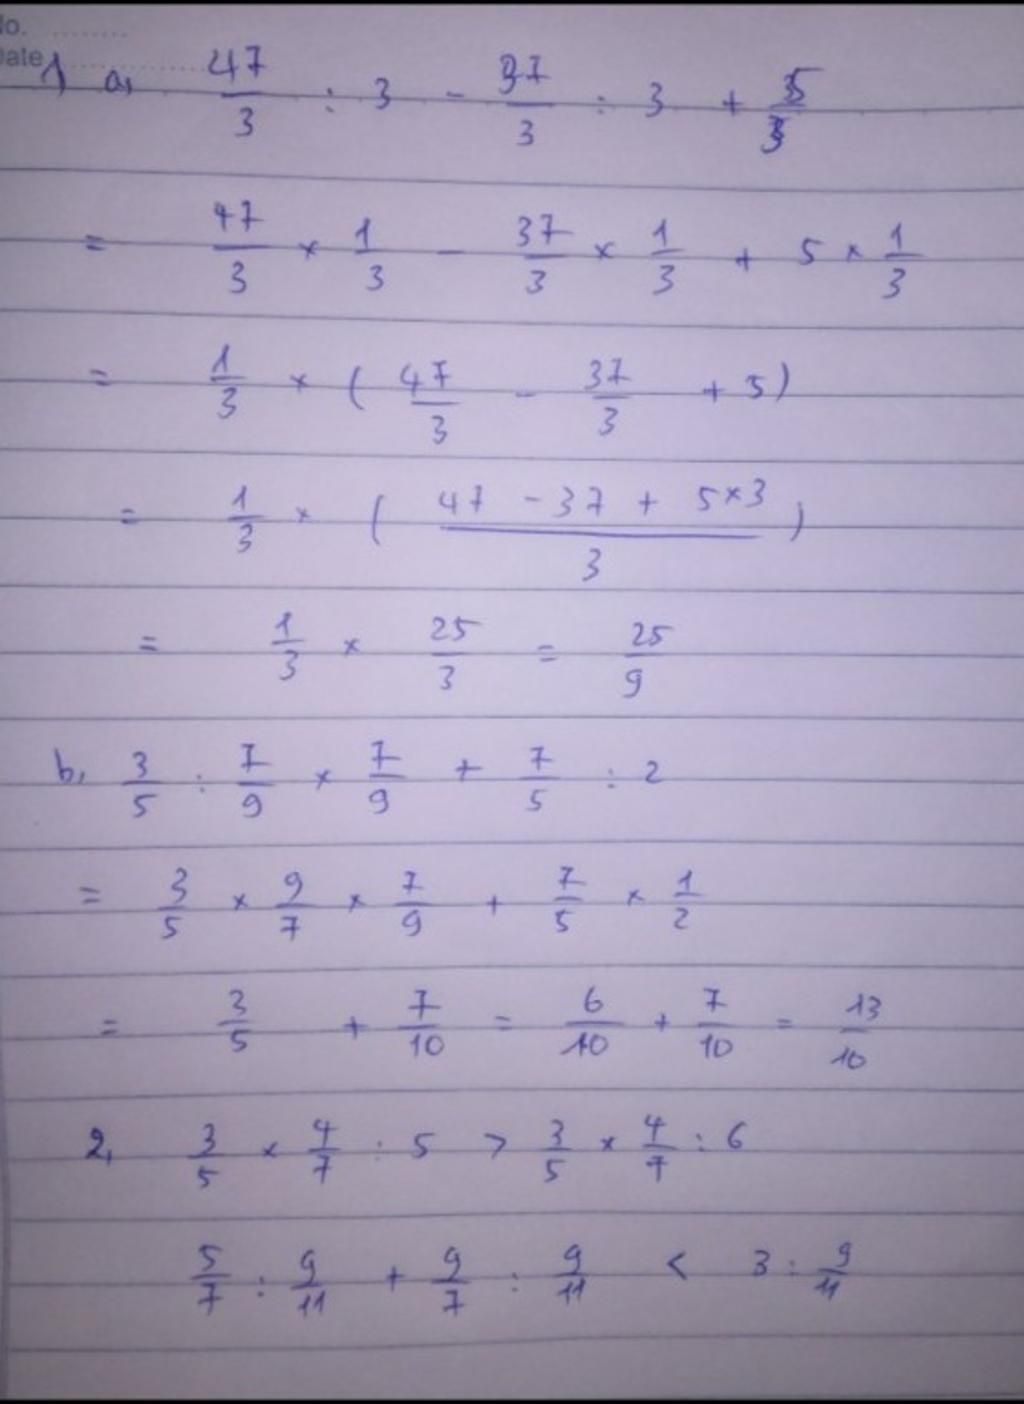 No. ........
Date ............
1, a, 47/3 : 3 - 37/3 : 3 + 5/3
= 47/3 × 1/3 - 37/3 × 1/3 + 5 × 1/3
= 1/3 × ( 47/3 - 37/3 + 5 )
= 1/3 × ( (47 - 37 + 5×3)/3 )
= 1/3 × 25/3 = 25/9
b, 3/5 : 7/9 × 7/9 + 7/5 : 2
= 3/5 × 9/7 × 7/9 + 7/5 × 1/2
= 3/5 + 7/10 = 6/10 + 7/10 = 13/10
2, 3/5 × 4/7 : 5 > 3/5 × 4/7 : 6
5/7 : 9/11 + 9/7 : 9/11 < 3 : 9/11